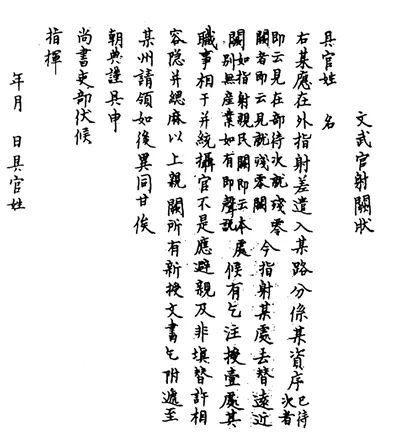 文武官射闕狀
具官姓　名
右某應在外指射差遣入某路分係某資序已待次者
即云見在部待次就殘零闕者即云見就殘零闕今指射某處去替遠近
闕如指射親民闕即云本處別無産業如有即聲說候有乞注授壹處其
職事相干并統攝官不是應避親及非填替許相
容隐并緦麻以上親闕所有新授文書乞附遞至
某州請領如後異同甘俟
朝典謹具申
尚書吏部伏候
指揮
年月　日具官姓